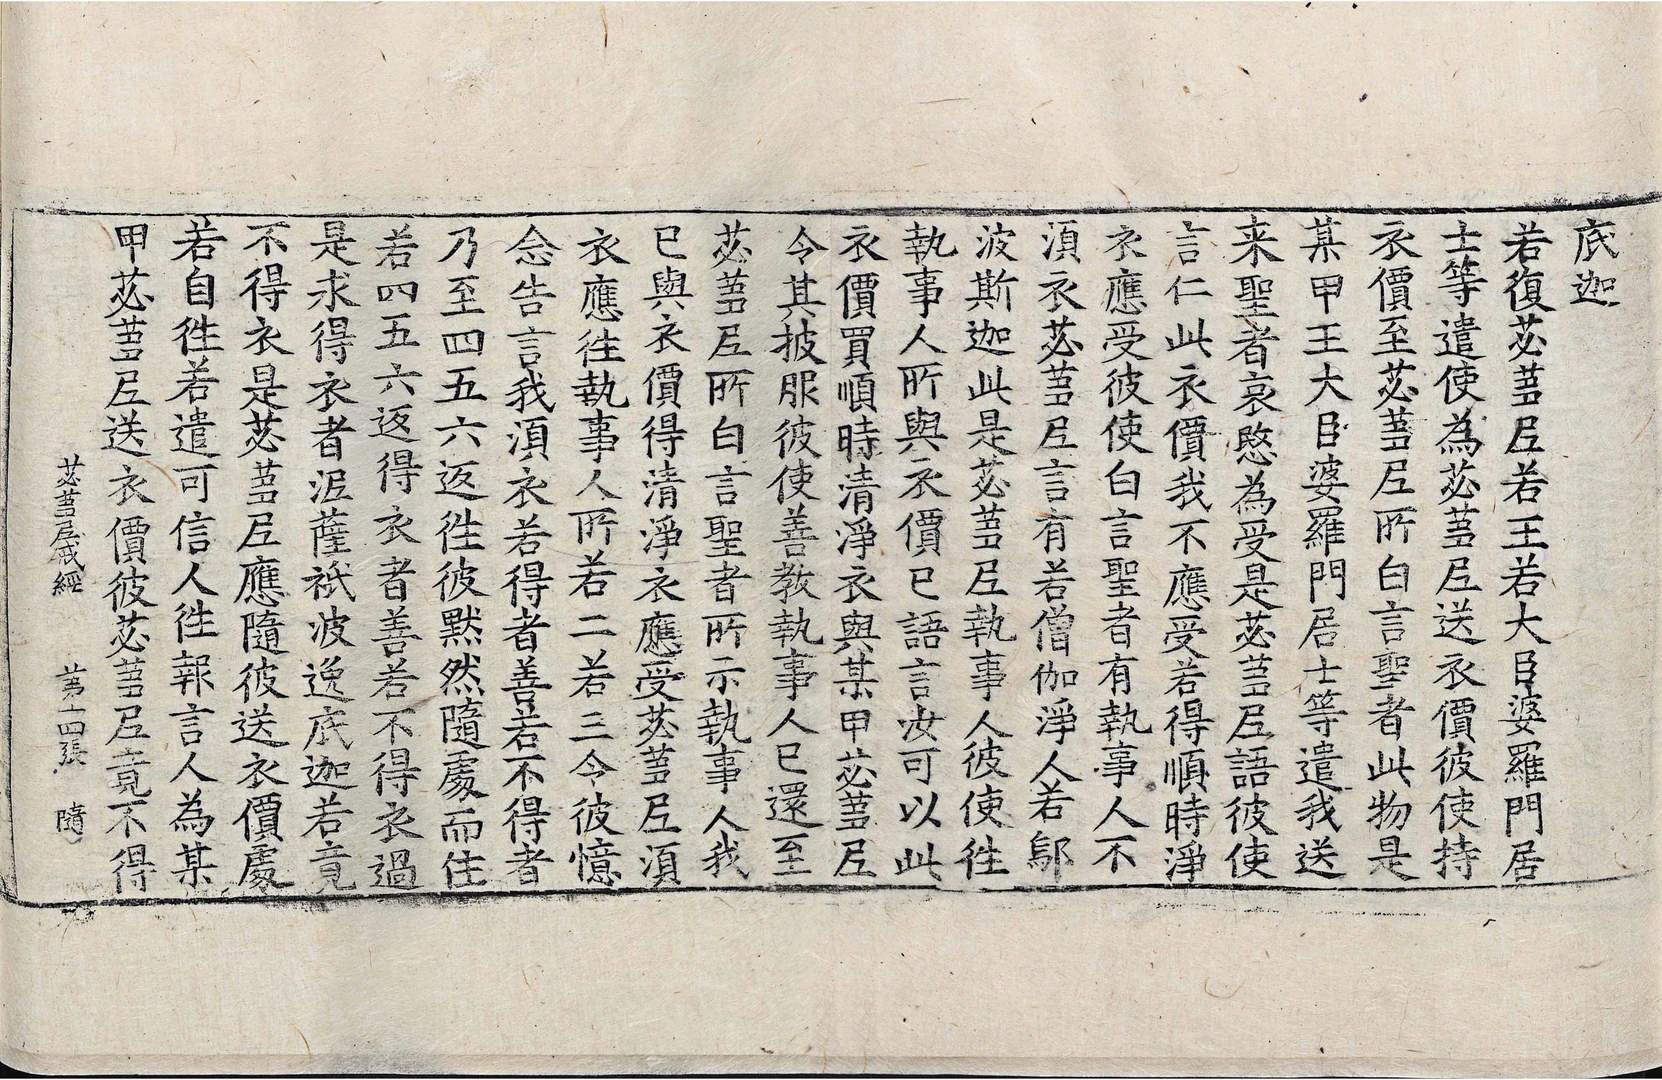 底迦
若復苾蒭尼若王若大臣婆羅門居
士等遣使為苾蒭尼送衣價彼使持
衣價至苾蒭尼所白言聖者此物是
某甲王大臣婆羅門居士等遣我送
来聖者哀愍為受是苾蒭尼語彼使
言仁此衣價我不應受若得順時淨
衣應受彼使白言聖者有執事人不
湏衣苾蒭尼言有若僧伽淨人若鄔
波斯迦此是苾蒭尼執事人彼使徃
執事人所與衣價已語言汝可以此
衣價買順時清淨衣與某甲苾蒭尼
令其披服彼使善教執事人已還至
苾蒭尼所白言聖者所示執事人我
已與衣價得清淨衣應受苾蒭尼湏
衣應徃執事人所若二若三令彼憶
念告言我湏衣若得者善若不得者
乃至四五六返徃彼默然隨處而住
若四五六返得衣者善若不得衣過
是求得衣者泥薩祇波逸底迦若竟
不得衣是苾蒭尼應隨彼送衣價處
若自徃若遣可信人徃報言人為某
甲苾蒭尼送衣價彼苾蒭尼竟不得
苾蒭尼戒經 第十四張 隨